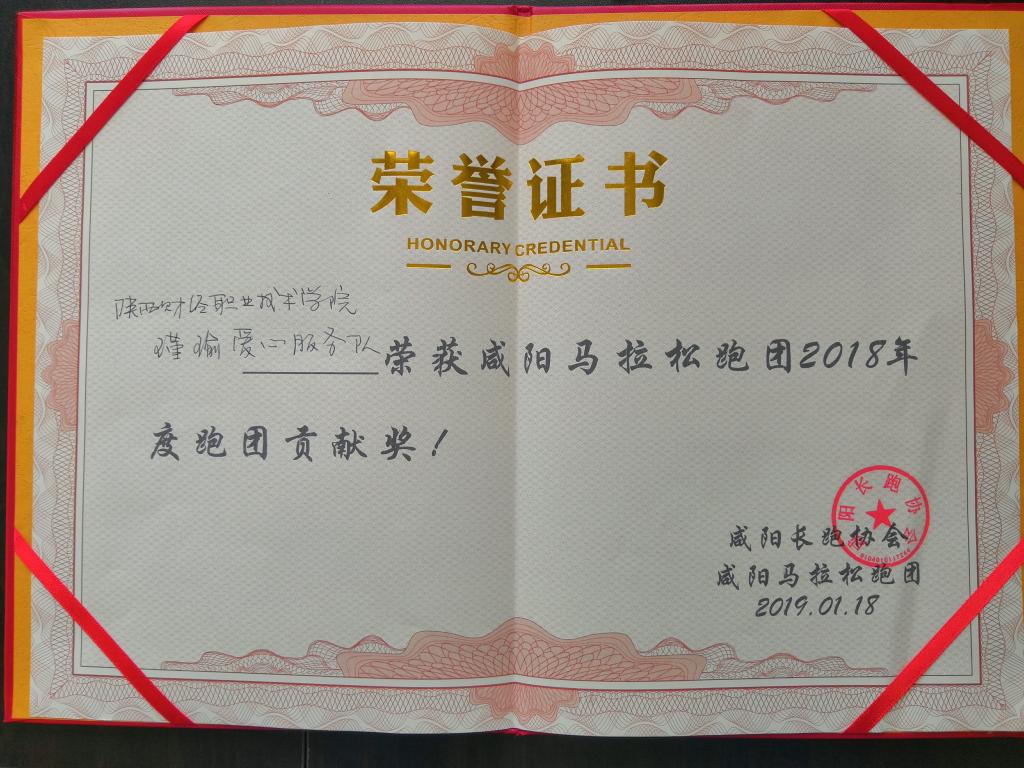 荣誉证书
HONORARY CREDENTIAL
陕西财经职业技术学院
瑾瑜爱心服务队荣获咸阳马拉松跑团2018年
度跑团贡献奖！
咸阳长跑协会
咸阳长跑协会
咸阳马拉松跑团
2019.01.18